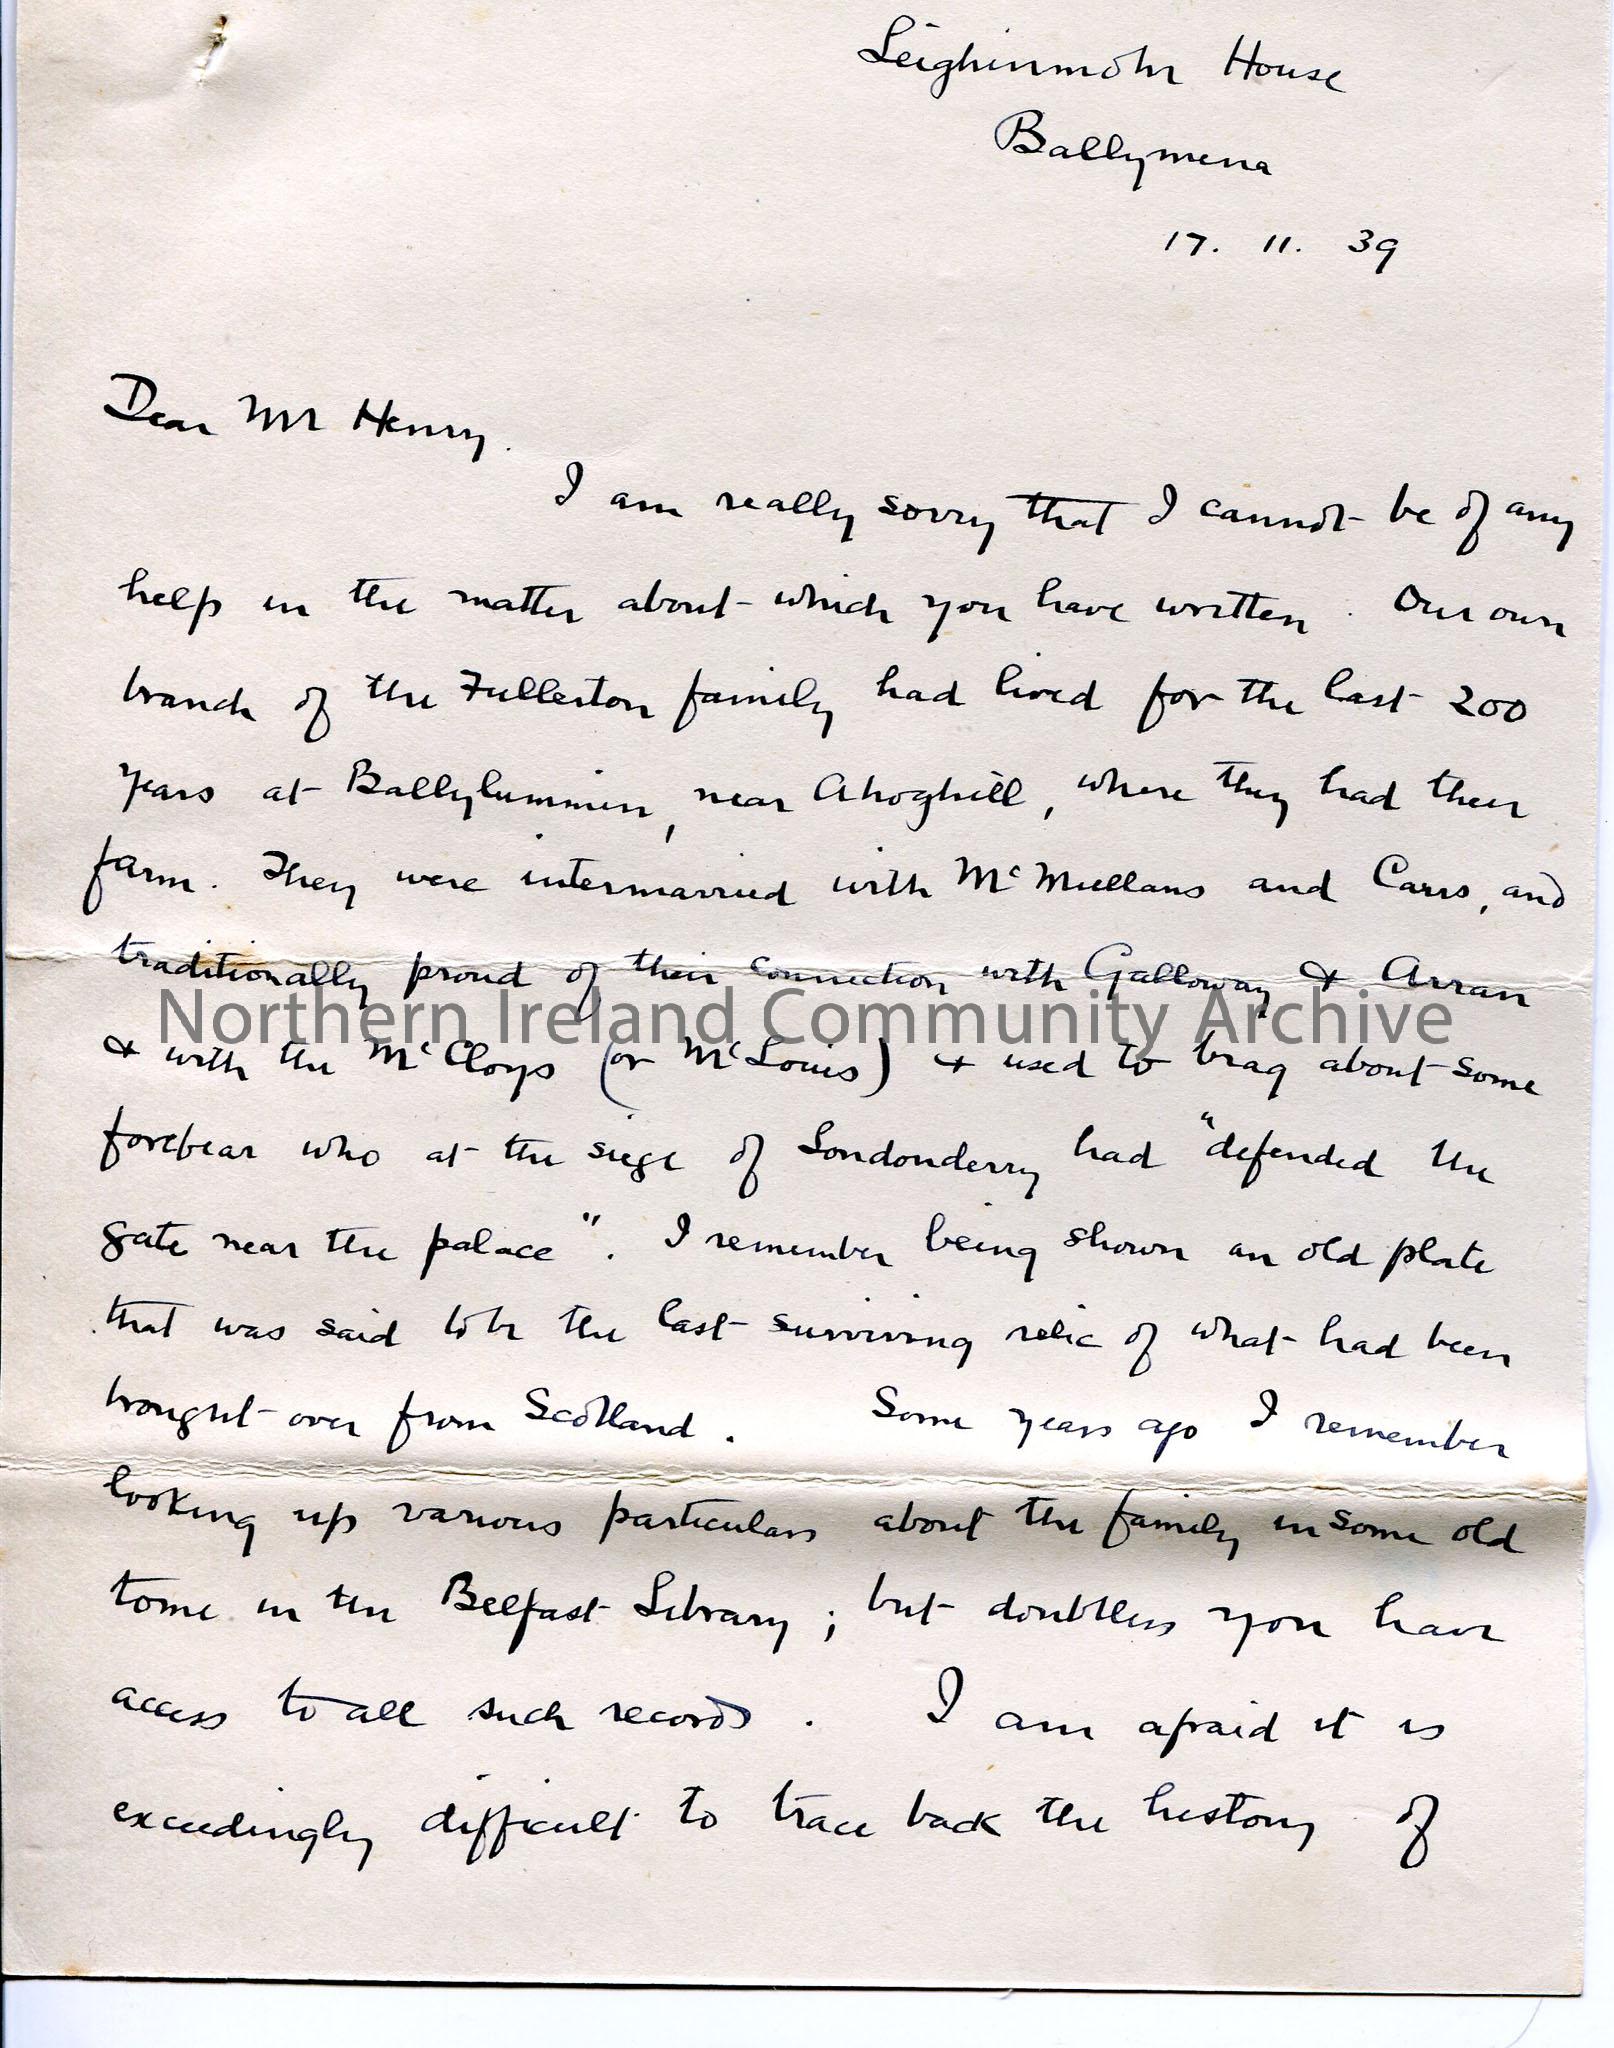 Leighinmohr House
Ballymena
17. 11. 39
Dear Mr Henry.
I am really sorry that I cannot be of any
help in the matter about which you have written. Our own
branch of the Fullerton family had lived for the last 200
years at Ballylummin, near Ahoghill, where they had their
farm. They were intermarried with McMullans and Carrs, and
traditionally proud of their connection with Galloway & Arran
Northern Ireland Community Archive
& with the McCloys (or McLouis) & used to brag about some
forebear who at the siege of Londonderry had "defended the
gate near the palace". I remember being shown an old plate
that was said to be the last surviving relic of what had been
brought over from Scotland. Some years ago I remember
looking up various particulars about the family in some old
tome in the Belfast Library; but doubtless you have
access to all such records. I am afraid it is
exceedingly difficult to trace back the history of